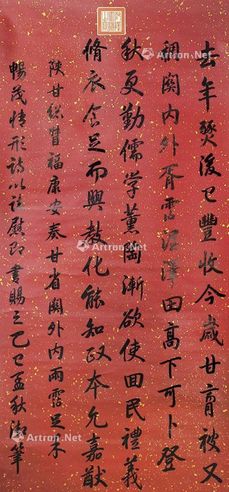 去年熯後已豐收今歲甘膏被又
稠關内外胥霑渥澤田高下可卜登
秋更勤儒學薰陶漸欲使回民禮義
脩衣食足而興教化能知政本允嘉猷
陝甘總督福康安奏甘省關外内雨霑足禾
暢茂情形詩以誌慰即書賜之乙巳孟秋御筆
Artron.Net